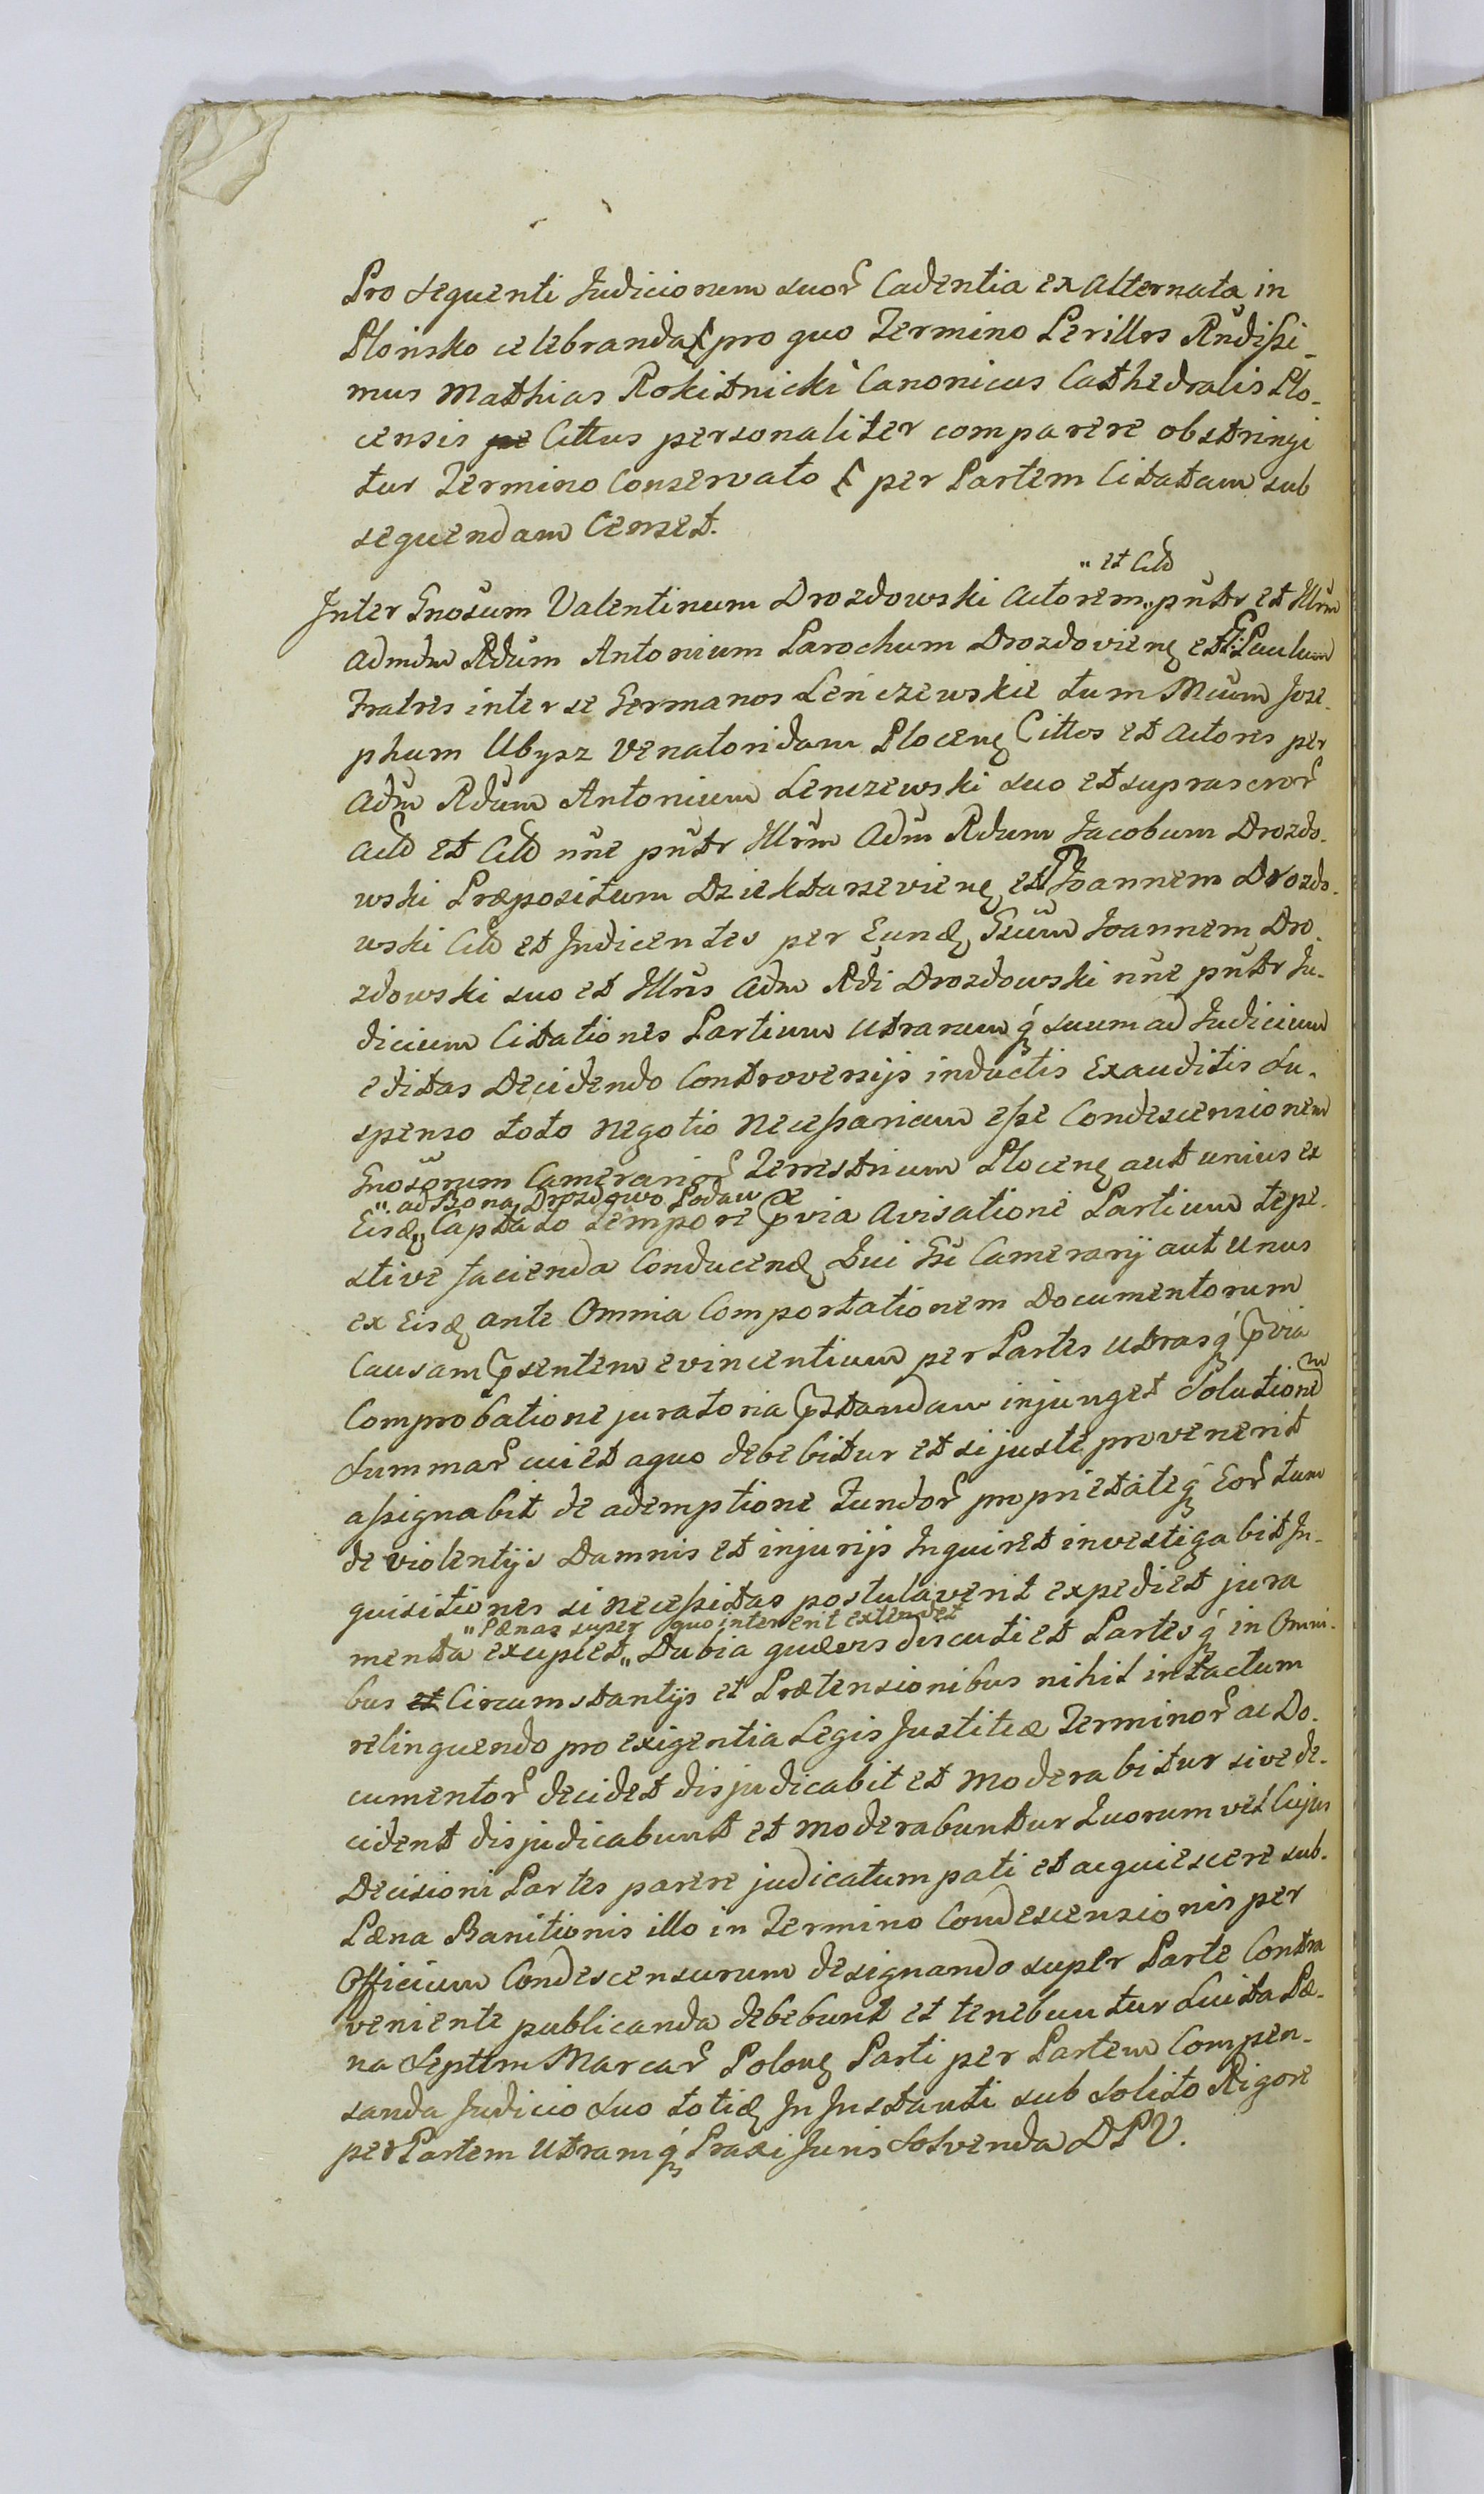 Pro sequenti Judiciorum suor Cadentia ex Alternata in
Płońsko celebranda pro quo Termino Perillrs Rndissi-
mus Mathias Rokitnicki Canonicus Cathedralis Plo-
censis Cittus personaliter comparere obstringi
tur Termino Conservato per Partem Citatam sub
sequendam Censet.
" et Citd
Inter Gnosum Valentinum Drozdowski Actorem " pntr et Illrm
Admdm Rdum Antonium Parochum Drozdovien et G: Paulum
Fratres inter se Germanos Lenczewskie tum Mcum Jose-
phum Ubysz Venatoridam Plocen Cittos et Actores per
Adm Rdum Antonium Lenczewski suo et suprascror
Actd et Citd nne pntr Illrm Adm Rdum Jacobum Drozdo-
wski Præpositum Dziektarzevien et Joannem Drozdo-
wski Citd et Indicentes per Eund Gsum Joannem Dro-
zdowski suo et Illris Adm Rdi Drozdowski nne pntr Ju-
dicium Citationes Partium Utrarumq suum ad Judicium
editas Decidendo Controversijs inductis Exauditis Su-
spenso toto Negotio Necessariam esse Condescensionem
Gnosorum Camerarior Terrestrium Plocen aut unius ex
" ad Bona Drozdowo Podan
Eisd " Captato Tempore prævia Avisatione Partium tepe-
stive facienda Conducend Qui Gsi Camerarij aut Unus
ex Eisd ante Omnia Comportationem Documentorum
Causam psentem evincentium per Partes Utrasq pvia
Comprobatione juratoria pstandam injunget Solutionem
Summar cui et a quo debebitur et si juste provenerit
assignabit de ademptione Fundor proprietateq Eor tum
de violentijs Damnis et injurijs Inquiret investigabit In-
quisitiones si necessitas postulaverit expediet jura
" Pænas super quo intererit extendet
menta excipiet " Dubia quævis discutiet Partesq in Omni-
bus et Circumstantijs et Prætensionibus nihil intactum
relinquendo pro exigentia Legis Justitiæ Terminor ac Do-
cumentor decidet disjudicabit et moderabitur sive de-
cident disjudicabunt et moderabuntur Quorum vel Cujus
Decisioni Partes parere judicatum pati et acquiescere sub
Pæna Banitionis illo in Termino Condescensionis per
Officium Condescensurum designando super Parte Contra
veniente publicanda debebunt et tenebuntur Luita Pæ-
na Septem Marcar Polon Parti per Partem Compen-
sanda Judicio Suo totid In Instanti sub solito Rigore
per Partem Utramq Praxi Juris Solvenda DPV.